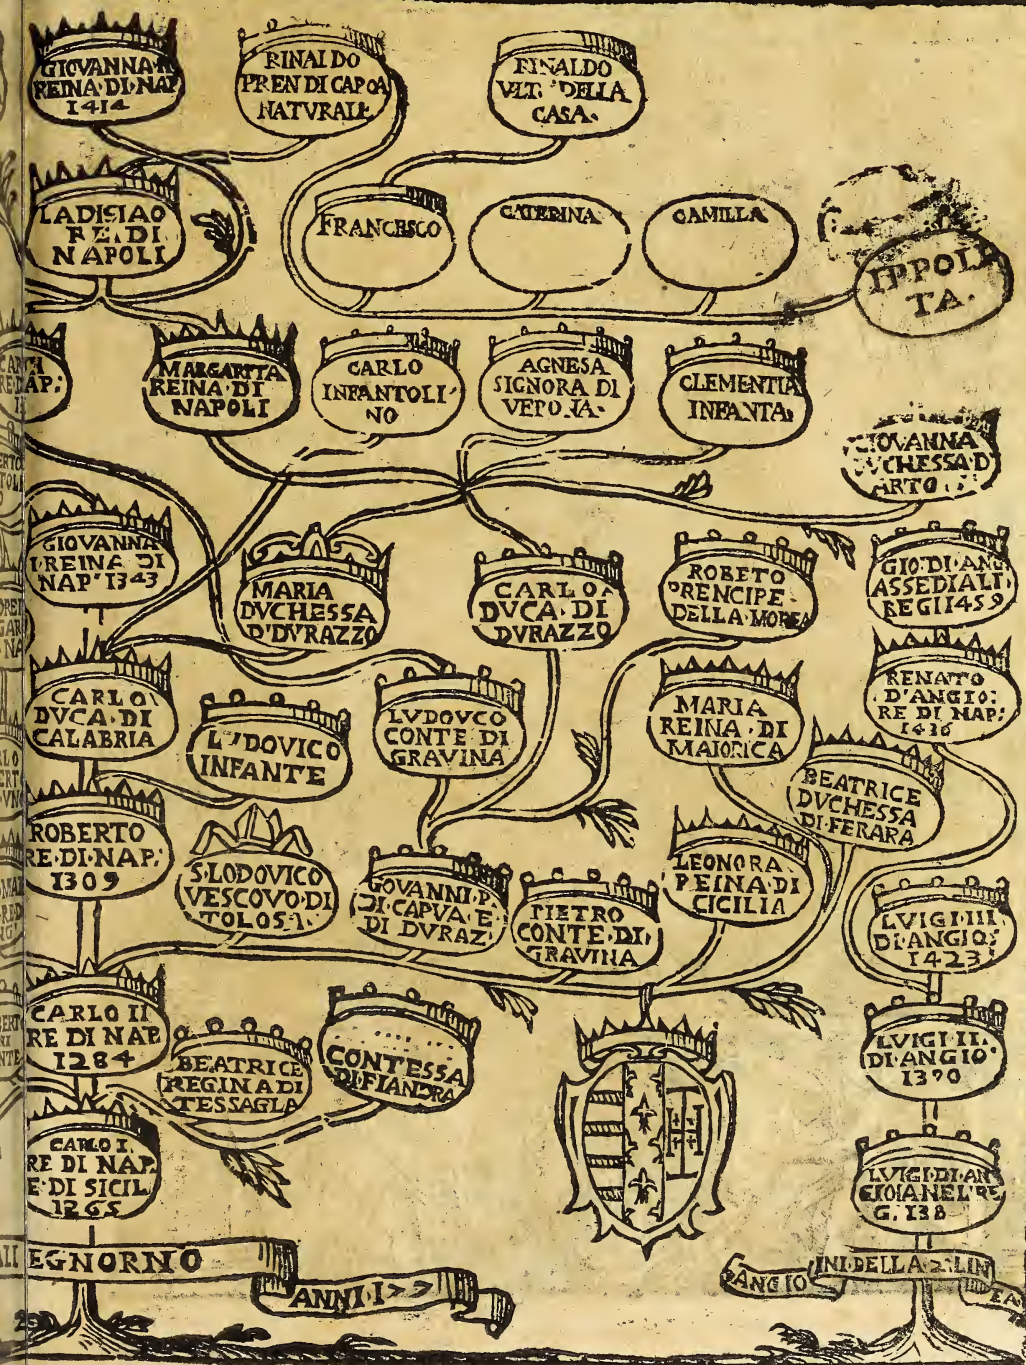 GIOVANNA
REINA·DI·NAP
1414
RINALDO
PREN DI CAPOA
NATVRALE
RINALDO
VLT. DELLA
CASA.
LADISLAO
RE·DI
NAPOLI
FRANCESCO
CATERINA
CAMILLA
IPPOLI
TA.
MARGARITA
REINA·DI
NAPOLI
CARLO
INFANTOLI
NO
AGNESA
SIGNORA DI
CLEMENTIA
INFANTA
GIOVANNA
CHESSA D
ARTO
GIOVANNA
I·REINA DI
NAP· 1343
MARIA
DVCHESSA
D'DVRAZZO
CARLO
DVCA·DI
DVRAZZO
ROBETO
PRENCIPE
DELLA·MOREA
GIO·DI·ANG
ASSEDIALI
REGII1459
CARLO
DVCA·DI
CALABRIA
LVDOVICO
INFANTE
LVDOVCO
CONTE DI
GRAVINA
MARIA
REINA·DI
MAIORICA
RENATO
D'ANGIO:
RE DI NAP:
1436
BEATRICE
DVCHESSA
DI·FERARA
ROBERTO
RE·DI·NAP:
1309
S·LODOVICO
VESCOVO·DI
TOLOSA
GOVANNI·P
DI·CAPVA·E
DI DVRAZ
PIETRO
CONTE·DI
GRAVINA
LEONORA
REINA·DI
CICILIA
LVIGI·III
DI·ANGIO:
1423
CARLO II
RE DI NAP.
1284
BEATRICE
REGINA DI
TESSAGLA
CONTESSA
DI·FIANDRA
LVIGI·II.
DI·ANGIO
1390
CARLO I.
RE DI NAP.
E·DI SICIL
1265
LVIGI·DI·AN
GIOIA·NEL·RE
G. 138
EGNORNO
ANNI·I77
DANGIO
INI·DELLA·2·LIN
EA